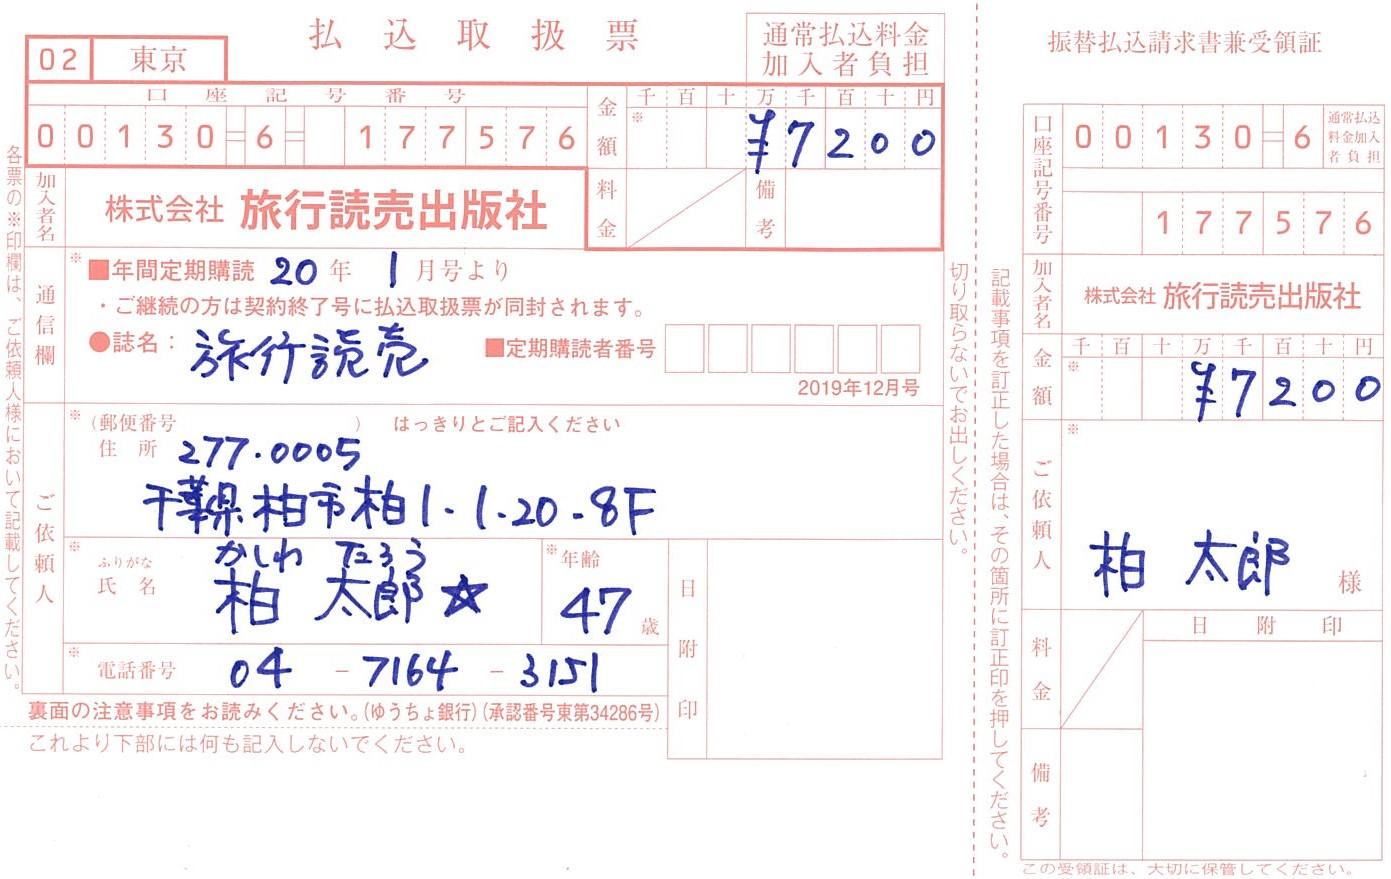 払込取扱票
通常払込料金
加入者負担
02 東京
口座記号番号
00130=6= 177576
金額
千百十万千百十円
※ ¥7200
加入者名
株式会社 旅行読売出版社
料金
備考
各票の※印欄は、ご依頼人様において記載してください。
通信欄
※
■年間定期購読 20年 1月号より
・ご継続の方は契約終了号に払込取扱票が同封されます。
●誌名：旅行読売 ■定期購読者番号
2019年12月号
ご依頼人
※
(郵便番号 ) はっきりとご記入ください
住所 277.0005
千葉県柏市柏1-1-20-8F
※
ふりがな かしわ たろう
氏名 柏 太郎 ☆
※年齢
47歳
※
電話番号 04 - 7164 - 3151
日附印
裏面の注意事項をお読みください。(ゆうちょ銀行)(承認番号東第34286号)
これより下部には何も記入しないでください。
切り取らないでお出しください。
振替払込請求書兼受領証
口座記号番号
00130=6
通常払込
料金加入
者負担
177576
加入者名
株式会社 旅行読売出版社
金額
千百十万千百十円
※ ¥7200
ご依頼人
※
柏 太郎 様
料金
日附印
備考
記載事項を訂正した場合は、その箇所に訂正印を押してください。
この受領証は、大切に保管してください。